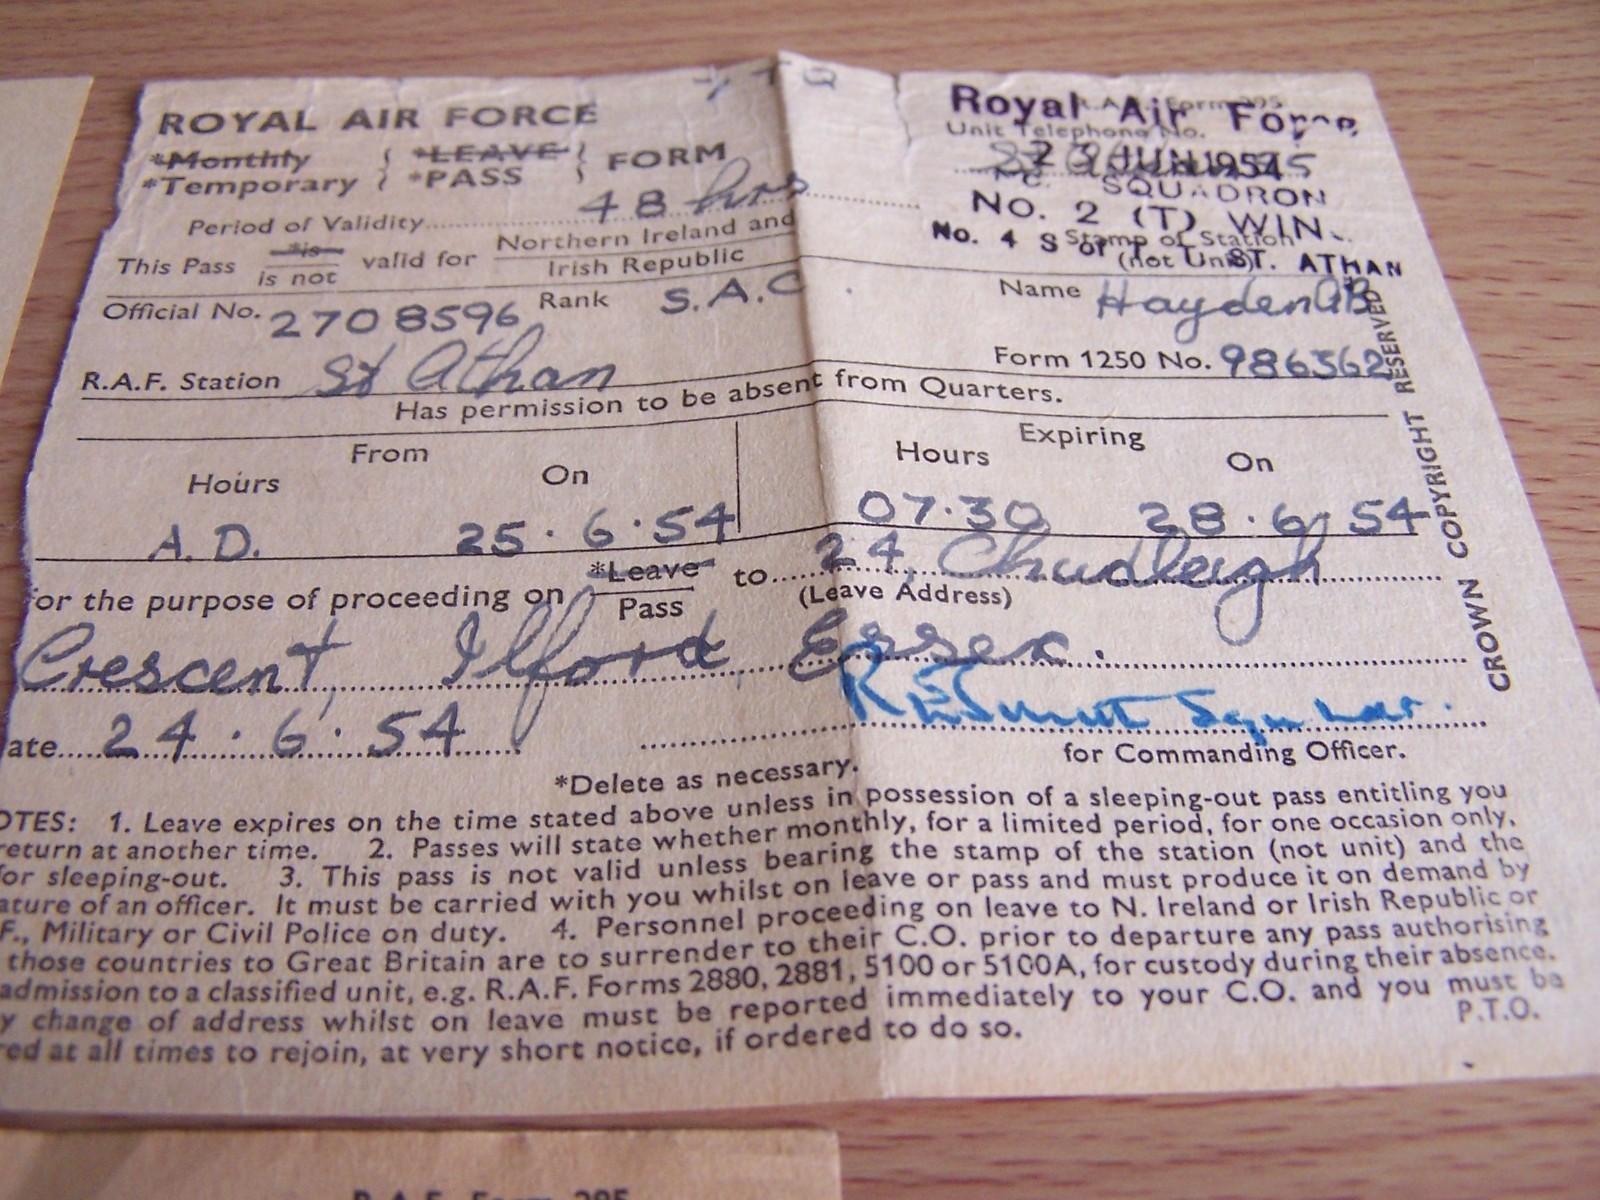 ROYAL AIR FORCE
*Monthly *LEAVE
*Temporary *PASS FORM
Period of Validity 48 hrs
This Pass *is / is not valid for Northern Ireland and / Irish Republic
R.A.F. Form 295
Royal Air Force
Unit Telephone No.
23 JUN 1954
SQUADRON
NO. 2 (T) WIN
No. 4 S of T. ST. ATHAN
Stamp of Station
(not Unit)
Official No. 2708596 Rank S.A.C Name Hayden AB
R.A.F. Station St Athan Form 1250 No. 986362
Has permission to be absent from Quarters.
From Expiring
Hours On Hours On
A.D. 25.6.54 07.30 28.6.54
or the purpose of proceeding on *Leave / Pass to 24, Chudleigh
(Leave Address)
Crescent, Ilford, Essex.
ate 24.6.54
for Commanding Officer.
*Delete as necessary.
OTES: 1. Leave expires on the time stated above unless in possession of a sleeping-out pass entitling you
return at another time. 2. Passes will state whether monthly, for a limited period, for one occasion only,
or sleeping-out. 3. This pass is not valid unless bearing the stamp of the station (not unit) and the
ature of an officer. It must be carried with you whilst on leave or pass and must produce it on demand by
F., Military or Civil Police on duty. 4. Personnel proceeding on leave to N. Ireland or Irish Republic or
those countries to Great Britain are to surrender to their C.O. prior to departure any pass authorising
admission to a classified unit, e.g. R.A.F. Forms 2880, 2881, 5100 or 5100A, for custody during their absence.
y change of address whilst on leave must be reported immediately to your C.O. and you must be
red at all times to rejoin, at very short notice, if ordered to do so.
P.T.O.
CROWN COPYRIGHT RESERVED
R.A.F. Form 295